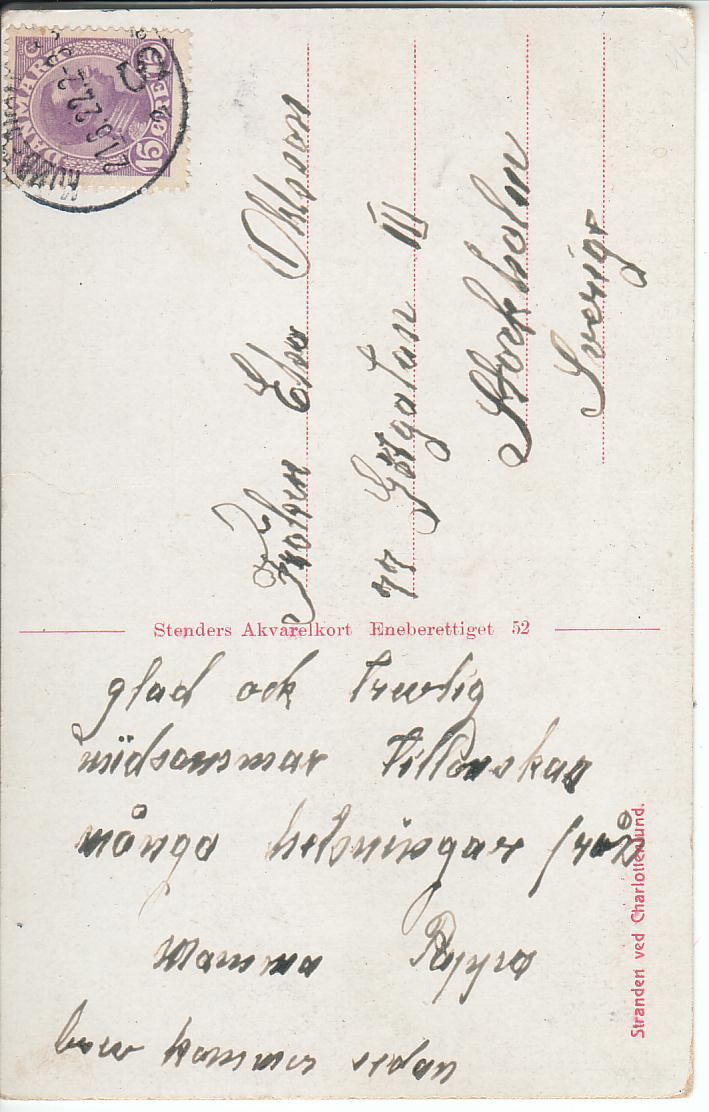 DANMARK
15
21.6.22.
Fröken Elsa Ohlsson
77 Götgatan III
Stockholm
Sverige
Stenders Akvarelkort Eneberettiget 52
glad och trevlig
midsommar tillönskas
många helsningar från
Mamma Pappa
brev kommer sedan
Stranden ved Charlottenlund.